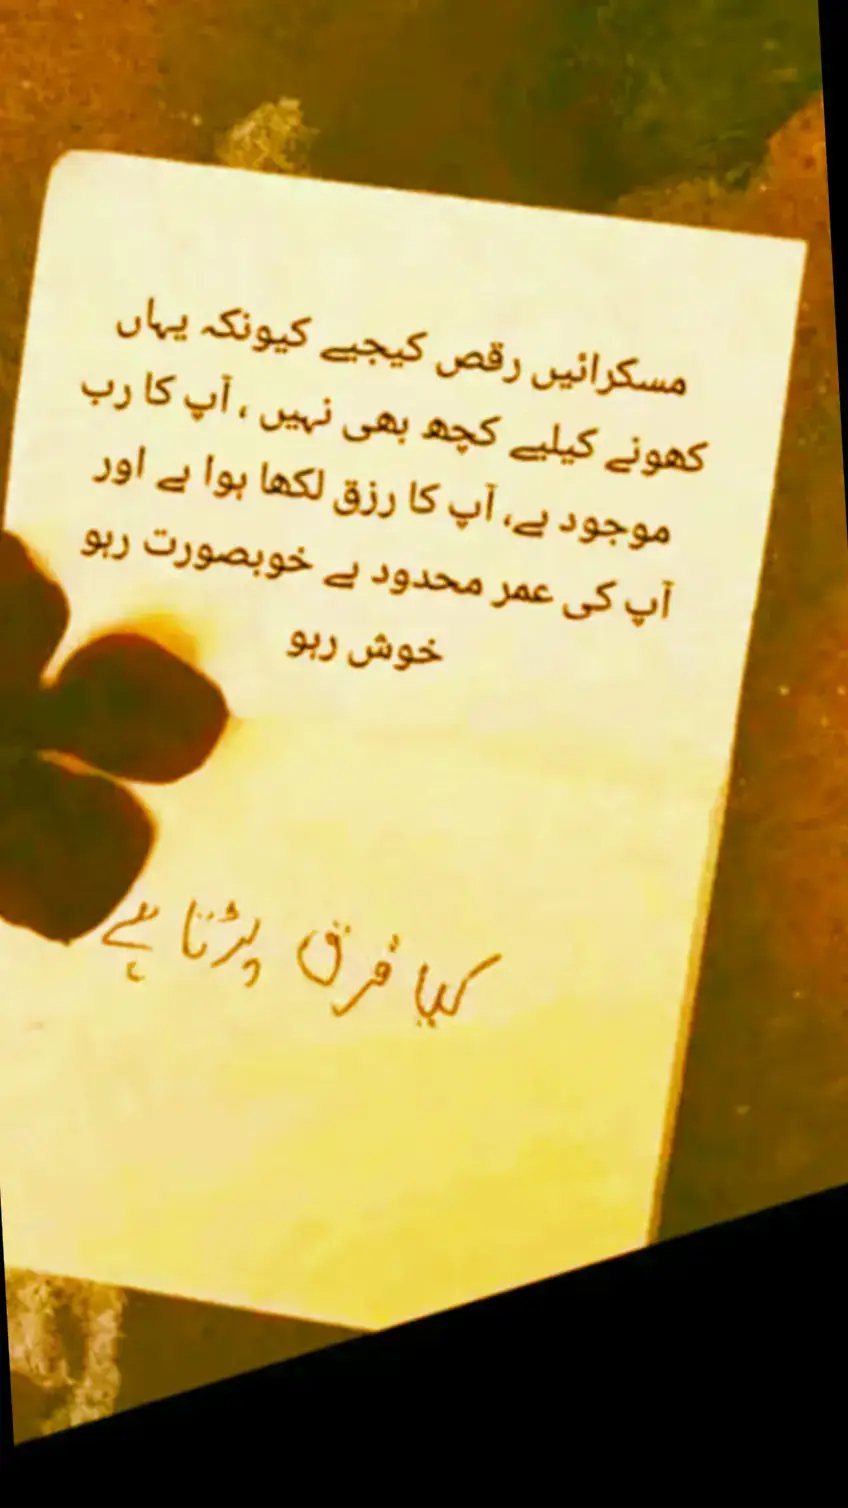 مسکرائیں رقص کیجیے کیونکہ یہاں
کھونے کیلیے کچھ بھی نہیں ، آپ کا رب
موجود ہے، آپ کا رزق لکھا ہوا ہے اور
آپ کی عمر محدود ہے خوبصورت رہو
خوش رہو
کیا فرق پڑتا ہے